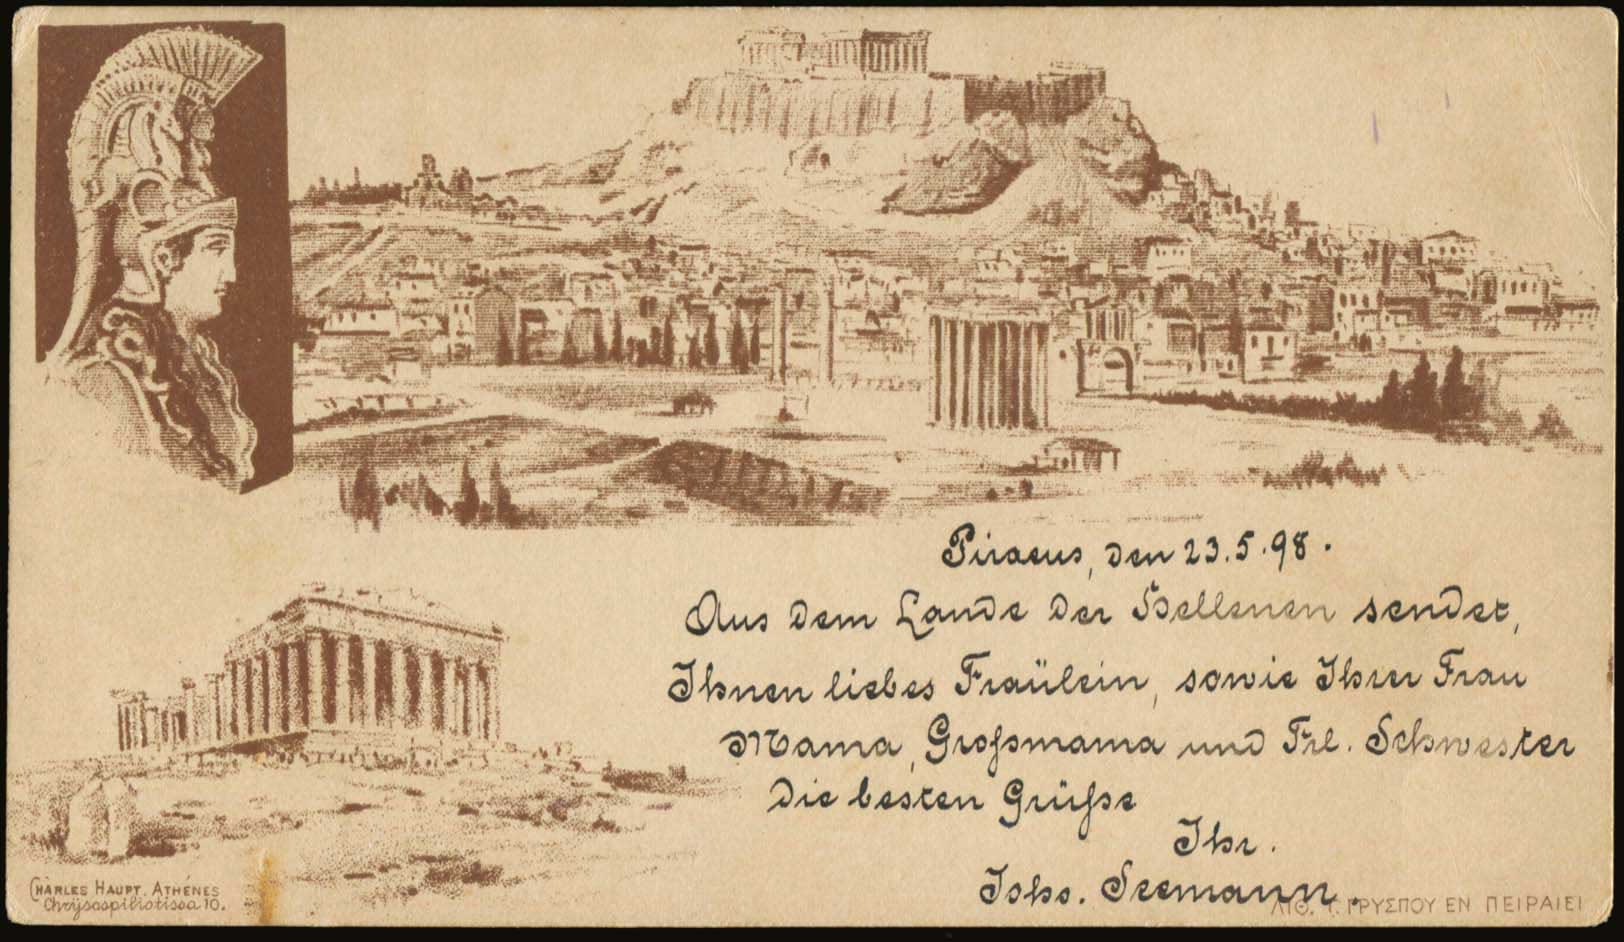 Piraeus, den 23.5.98.
Aus dem Lande der Hellenen sendet,
Ihnen liebes Fraülein, sowie Ihrer Frau
Mama, Großmama und Frl. Schwester
die besten Grüße
Ihr.
Johs. Seemann.
CHARLES HAUPT. ATHÉNES
Chrysospiliotissa 10.
ΛΙΘ. Γ. ΓΡΥΣΠΟΥ ΕΝ ΠΕΙΡΑΙΕΙ